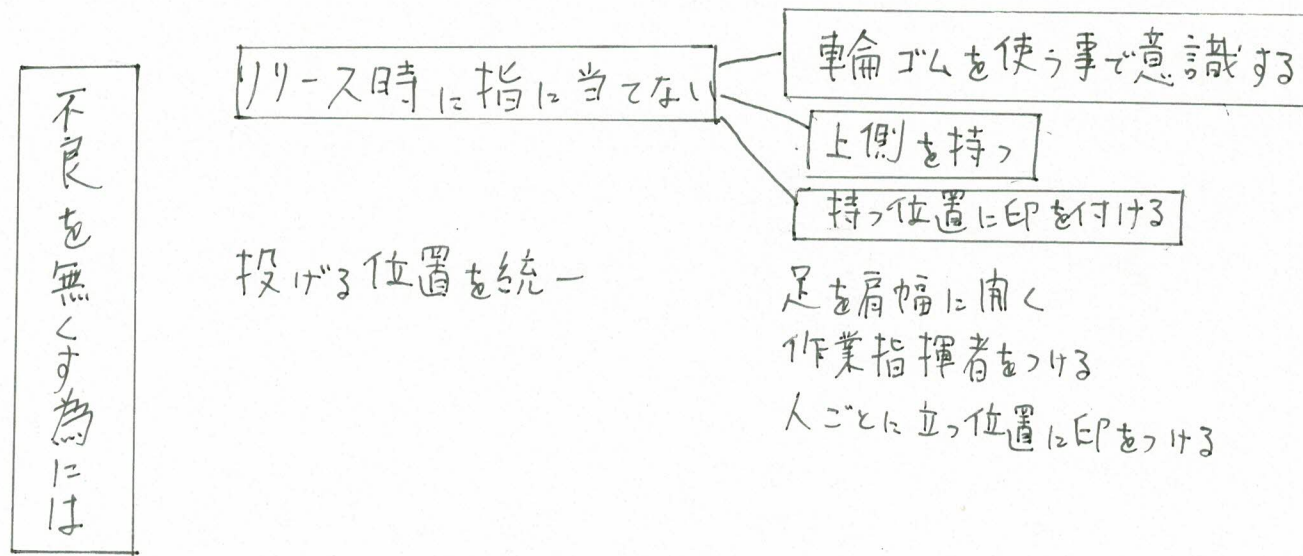 不良を無くす為には
リリース時に指に当てない
車輪ゴムを使う事で意識する
上側を持つ
持つ位置に印を付ける
投げる位置を統一
足を肩幅に開く
作業指揮者をつける
人ごとに立つ位置に印をつける